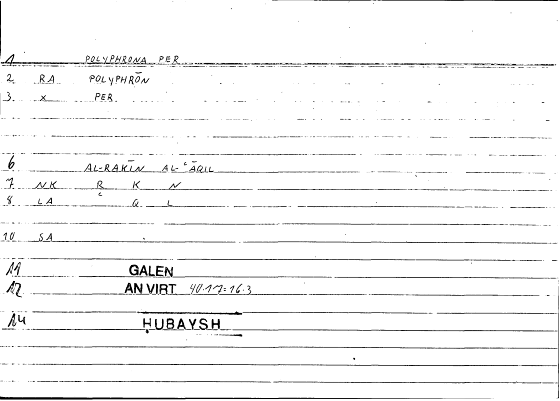 1 POLYPHRONA PER
2. RA POLYPHRŌN
3. x PER
6 AL-RAKĪN AL-ʿĀQIL
7. NK R K N
8 LA ʿ Q L
10 SA
11 GALEN
12 AN VIRT 40.17=16.3
14 ḤUBAYSH